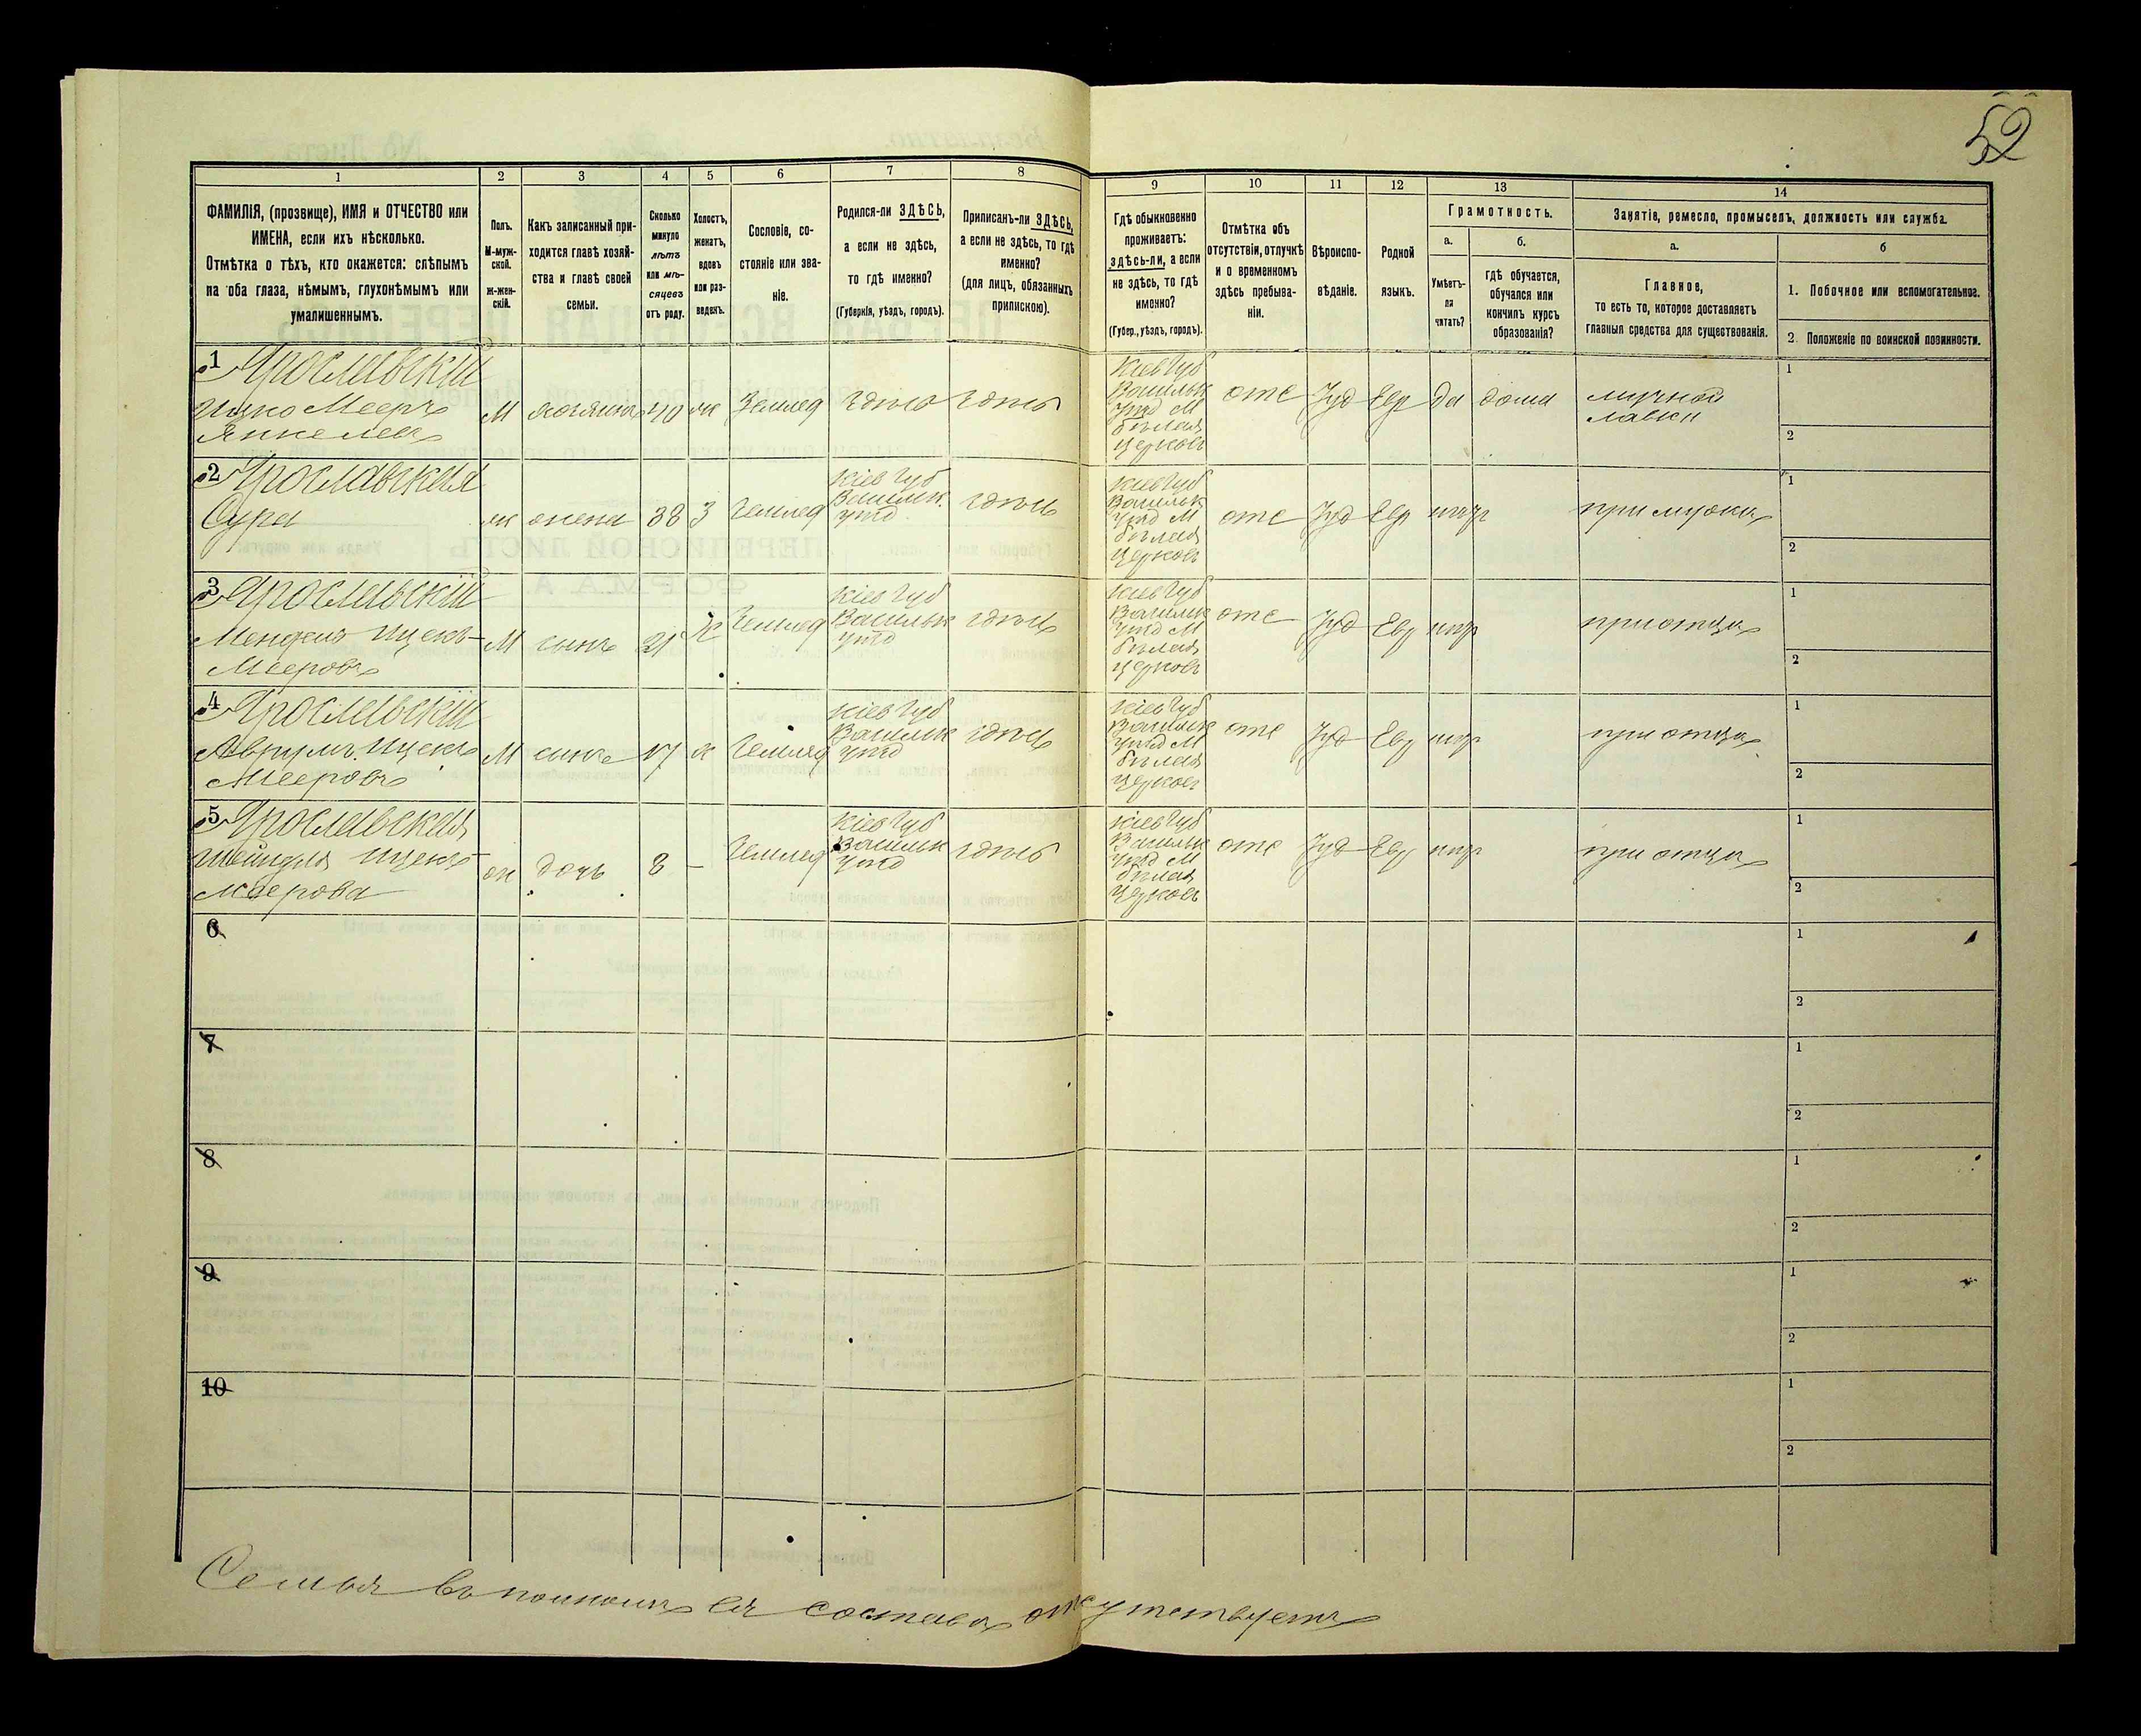 52
1
2
3
4
5
6
7
8
9
10
11
12
13
14
ФАМИЛІЯ, (прозвище), ИМЯ и ОТЧЕСТВО или
ИМЕНА, если ихъ нѣсколько.
Отмѣтка о тѣхъ, кто окажется: слѣпымъ
на оба глаза, нѣмымъ, глухонѣмымъ или
умалишеннымъ.
Полъ.
М-муж-
ской.
ж-жен-
скій.
Какъ записанный при-
ходится главѣ хозяй-
ства и главѣ своей
семьи.
Сколько
минуло
лѣтъ
или мѣ-
сяцевъ
отъ роду.
Холостъ,
женатъ,
вдовъ
или раз-
веденъ.
Сословіе, со-
стояніе или зва-
ніе.
Родился-ли ЗДѢСЬ,
а если не здѣсь,
то гдѣ именно?
(Губернія, уѣздъ, городъ).
Приписанъ-ли ЗДѢСЬ,
а если не здѣсь, то гдѣ
именно?
(для лицъ, обязанныхъ
припискою).
Гдѣ обыкновенно
проживаетъ:
здѣсь-ли, а если
не здѣсь, то гдѣ
именно?
(Губер., уѣздъ, городъ).
Отмѣтка объ
отсутствіи, отлучкѣ
и о временномъ
здѣсь пребыва-
ніи.
Вѣроиспо-
вѣданіе.
Родной
языкъ.
Грамотность.
а.
Умѣетъ-
ли
читать?
б.
Гдѣ обучается,
обучался или
кончилъ курсъ
образованія?
Занятіе, ремесло, промыселъ, должность или служба.
а.
Главное,
то есть то, которое доставляетъ
главныя средства для существованія.
б
1. Побочное или вспомогательное.
2. Положеніе по воинской повинности.
1 Ярославскій
Ицко Мееръ
Янкелевъ
М хозяинъ 40 ж Землед здѣсь здѣсь
Кіев Губ
Васильк
Уѣзд М
бѣлая
Церковь
отс Iуд Евр да дома
мучной
лавки
1
2
2 Ярославская
Сура
ж жена 38 З Землед
Кіев Губ
Васильк.
Уѣзд
здѣсь
Кіев Губ
Васильк
Уѣзд М
бѣлая
Церковь
отс Iуд Евр негр
при мужѣ
1
2
3 Ярославскій
Мендель Ицекъ-
Мееровъ
М сынъ 21 Х Землед
Кіев Губ
Васильк
Уѣзд
здѣсь
Кіев Губ
Васильк
Уѣзд М
бѣлая
Церковь
отс Iуд Евр негр
при отцѣ
1
2
4 Ярославскій
Аврумъ Ицекъ
Мееровъ
М сынъ 17 х Землед
Кіев Губ
Васильк
Уѣзд
здѣсь
Кіев Губ
Васильк
Уѣзд М
бѣлая
Церковь
отс Iуд Евр негр
при отцѣ
1
2
5 Ярославская
Шейндля Ицекъ-
Меерова
ж дочь 8 –
Землед
Кіев Губ
Васильк
Уѣзд
здѣсь
Кіев Губ
Васильк
Уѣзд М
бѣлая
Церковь
отс Iуд Евр негр
при отцѣ
1
2
6
1
2
7
1
2
8
1
2
9
1
2
10
1
2
Семья въ полномъ ея составѣ отсутствуетъ